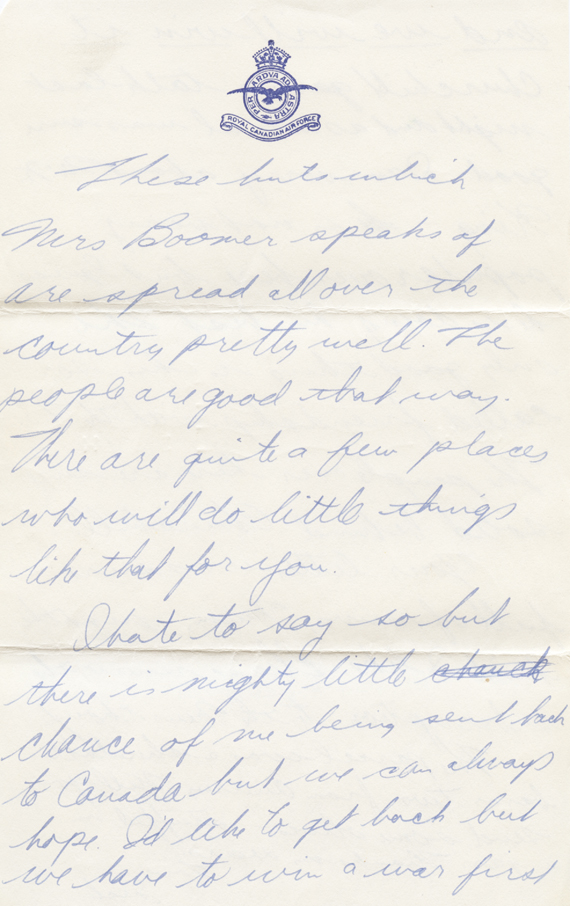 PER ARDVA AD ASTRA
ROYAL CANADIAN AIR FORCE
These huts which
Mrs Boomer speaks of
are spread all over the
country pretty well. The
people are good that way.
There are quite a few places
who will do little things
like that for you.
I hate to say so but
there is mighty little chanch
chance of me being sent back
to Canada but we can always
hope. I'd like to get back but
we have to win a war first